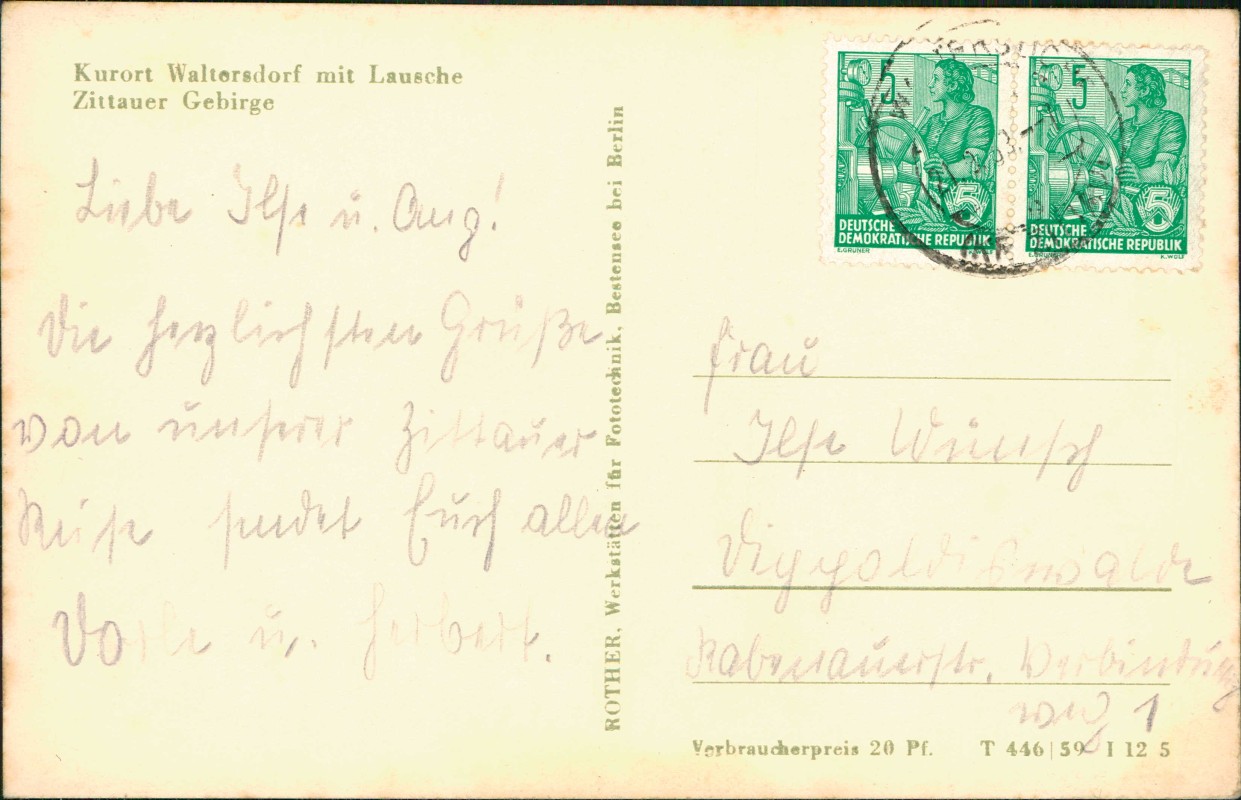 Kurort Waltersdorf mit Lausche
Zittauer Gebirge
Liebe Ilse u. Aug!
Die herzlichsten Grüße
von unserer Zittauer
Reise sendet Euch allen
Dorle u. Herbert.
ROTHER, Werkstätten für Fototechnik, Bestensee bei Berlin
5
5
DEUTSCHE
DEMOKRATISCHE REPUBLIK
E.GRUNER
5
5
DEUTSCHE
DEMOKRATISCHE REPUBLIK
K.WOLF
Frau
Ilse Wünsch
Dippoldiswalde
Rabenauerstr. Verbindung
weg 1
Verbraucherpreis 20 Pf. T 446|59 I 12 5